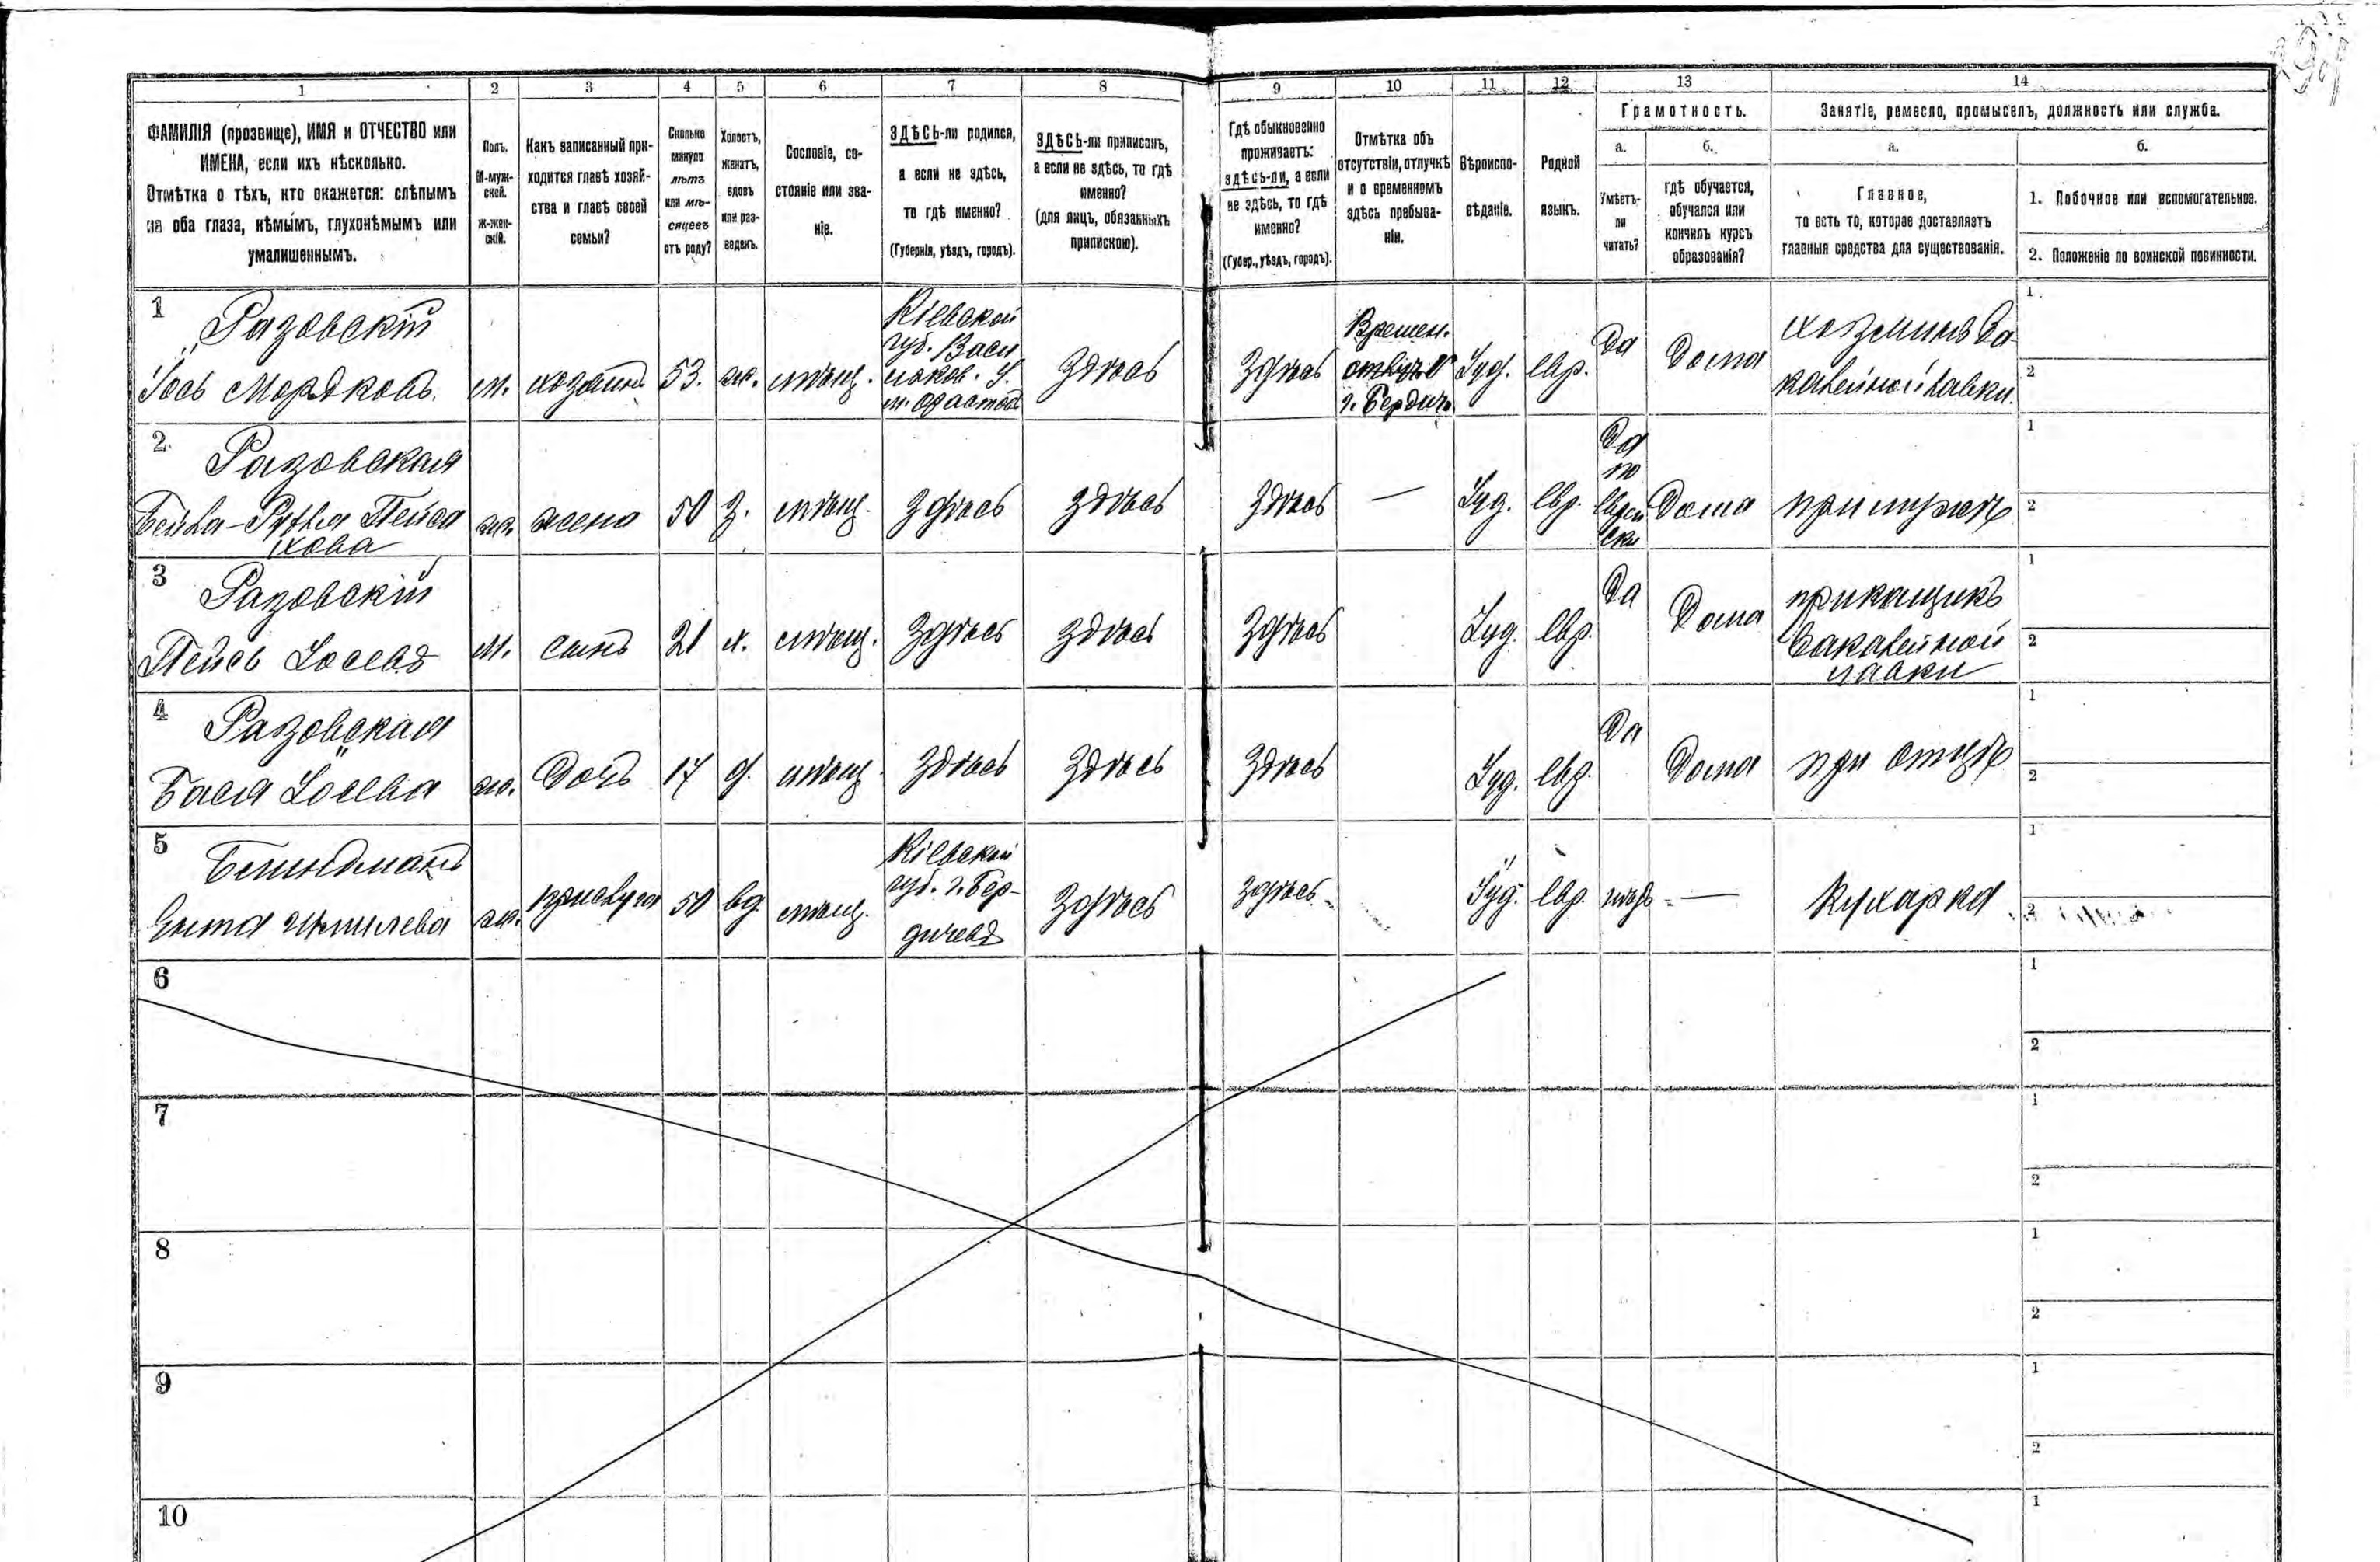 1 2 3 4 5 6 7 8 9 10 11 12 13 14
ФАМИЛІЯ (прозвище), ИМЯ и ОТЧЕСТВО или
ИМЕНА, если ихъ нѣсколько.
Отмѣтка о тѣхъ, кто окажется: слѣпымъ
на оба глаза, нѣмымъ, глухонѣмымъ или
умалишеннымъ.
Полъ.
М-муж-
ской.
Ж-жен-
скій.
Какъ записанный при-
ходится главѣ хозяй-
ства и главѣ своей
семьи?
Сколько
минуло
лѣтъ
или мѣ-
сяцевъ
отъ роду?
Холостъ,
женатъ,
вдовъ
или раз-
веденъ.
Сословіе, со-
стояніе или зва-
ніе.
ЗДѢСЬ-ли родился,
а если не здѣсь,
то гдѣ именно?
(Губернія, уѣздъ, городъ).
ЗДѢСЬ-ли приписанъ,
а если не здѣсь, то гдѣ
именно?
(для лицъ, обязанныхъ
припискою).
Гдѣ обыкновенно
проживаетъ:
здѣсь-ли, а если
не здѣсь, то гдѣ
именно?
(Губер., уѣздъ, городъ).
Отмѣтка объ
отсутствіи, отлучкѣ
и о временномъ
здѣсь пребыва-
ніи.
Вѣроиспо-
вѣданіе.
Родной
языкъ.
Грамотность.
а.
Умѣетъ-
ли
читать?
б.
гдѣ обучается,
обучался или
кончилъ курсъ
образованія?
Занятіе, ремесло, промыселъ, должность или служба.
а.
Главное,
то есть то, которое доставляетъ
главныя средства для существованія.
б.
1. Побочное или вспомогательное.
2. Положеніе по воинской повинности.
1
Разовскій
Іось Мордковъ.
м.
хозяинъ
53.
ж.
мѣщ.
Кіевской
губ. Васи
льков. у.
м. Фастовъ
здѣсь
здѣсь
Времен.
г. Бердич.
Іуд.
евр.
Да
Дома
хозяинъ ба
калейной лавки.
1
2
2
Разовская
Бейла-Рухля Пейса
хова
ж.
жена
50
з.
мѣщ.
здѣсь
здѣсь
здѣсь
—
Іуд.
евр.
Да
по
еврей
ски
Дома
при мужѣ
1
2
3
Разовскій
Пейсъ Іосевъ
м.
сынъ
21
х.
мѣщ.
здѣсь
здѣсь
здѣсь
Іуд.
евр.
Да
Дома
прикащикъ
бакалейной
лавки
1
2
4
Разовская
Бася Іосева
ж.
дочь
17
д.
мѣщ.
здѣсь
здѣсь
здѣсь
Іуд.
евр.
Да
Дома
при отцѣ
1
2
5
ж.
прислуга
50
вд.
мѣщ.
Кіевской
губ. г. Бер-
дичевъ
здѣсь
здѣсь
Іуд.
евр.
нѣтъ
—
Кухарка
1
2
6
1
2
7
1
2
8
1
2
9
1
2
10
1